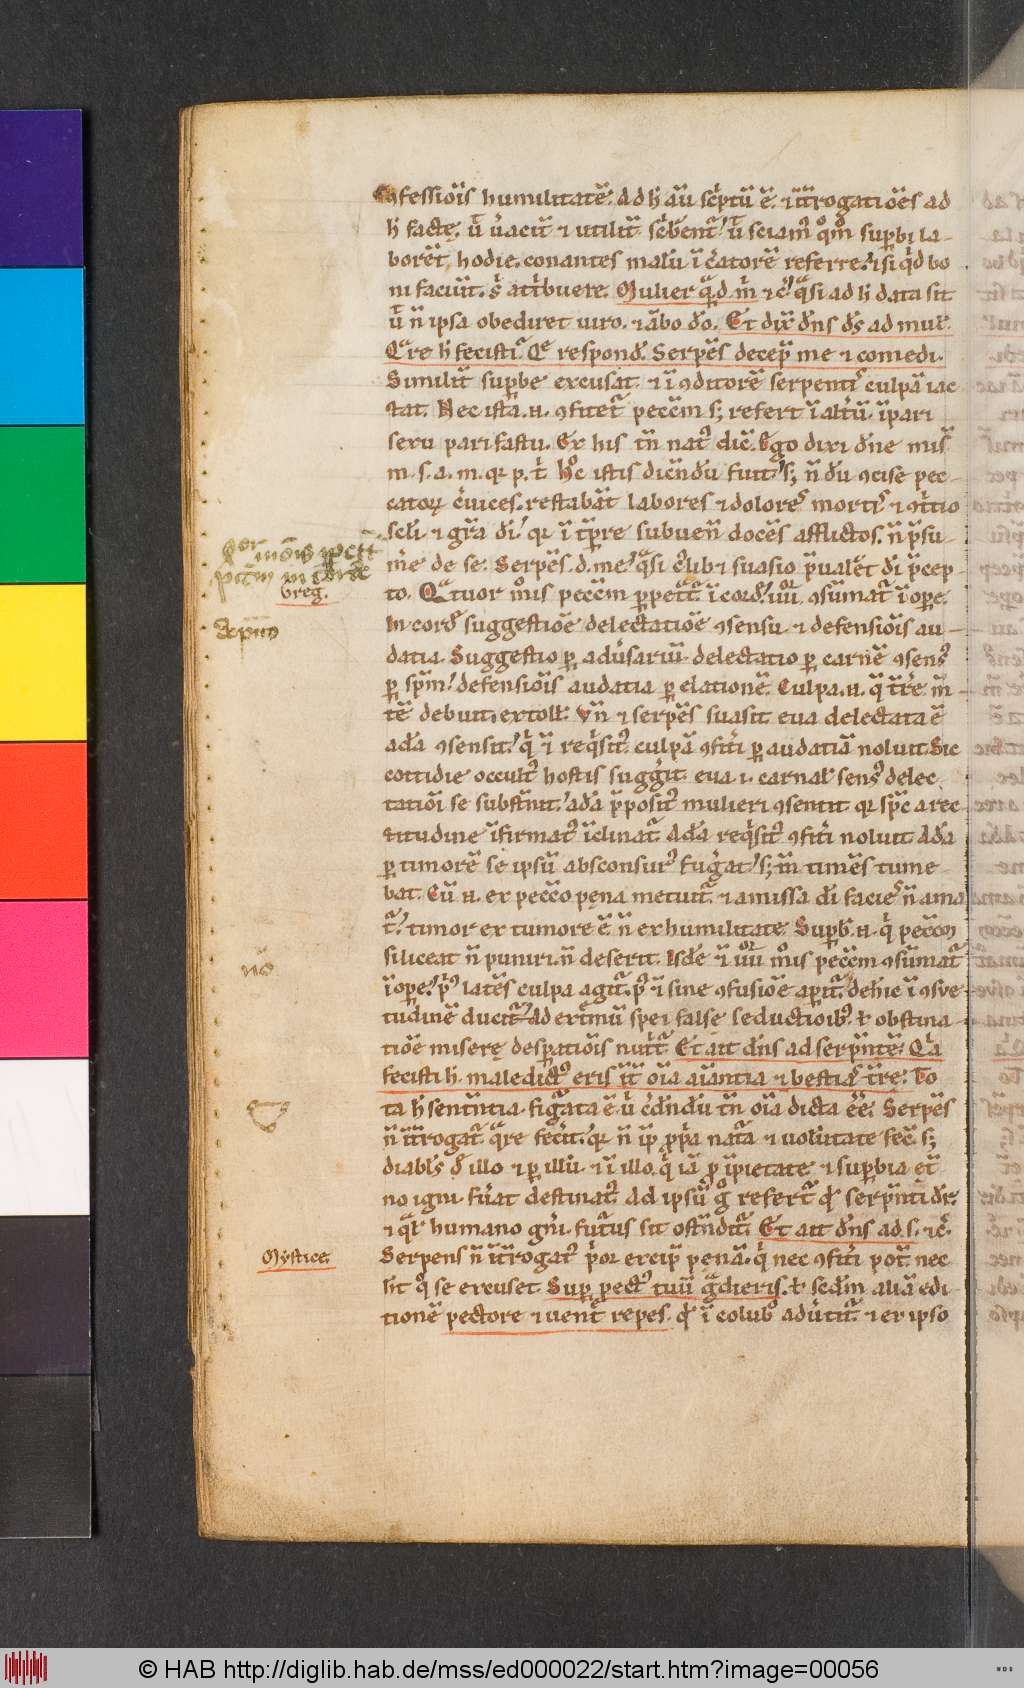 ꝯfessiōis humilitatē. ad h̵ aū sc̄ptū ē. ⁊ īt̄rogatiōes ad
h̵ factę. ut̄ u̓acit̄ ⁊ utilit̄ sc̄bent᷑ ut̄ sciam᷒ qͦm̄ suꝑbi la-
borēt, hodie. conantes malū ī c̓atorē referre. ⁊ si qͥd bo
ni faciūt. s̓ att̓buere. Mulier qᷓ d. m̓ ⁊ c̓. qᷓsi ad h̵ data sit
ut̄ n̄ ipsa obediret uiro. ⁊ ābo d̓o. Et dix̄ dn̄s ds̄ ad mul̓.
Qᷓre h̵ fecisti. Qͤ respond̓. Serpēs decep̄ me ⁊ comedi.
Similit̄ suꝑbe excusat. ⁊ ī ꝯditorē serpentis culpā iac
tat. Nec ista. n. ꝯfitet᷑ pecc̄m s; refert ī alt̓ū. īpari
sexu pari fastu. Ex his tn̄ nat᷒ dic̄. Ego dixi dn̄e mis̄
m. s. a. m. qꝛ p. t̓ h̓c istis dicēdū fuit. s; n̄ dū ꝯcise pec-
catoꝝ c̓uices. restabāt labores ⁊ dolores mortis ⁊ ꝯt̓tio
scl̓i ⁊ gr̄a di̓. qꝛ ī tp̄re subuen̄ docēs afflictos. n̄ p̄su-
m̓e de se. Serpēs. d. me. qᷓsi c̓lib; ⁊ suasio p̄ualet di̓ p̄cep
to. Qᷓtuor m̓is pecc̄m ꝑpet᷑ ī cord̓. iiii ꝯsūmat᷑ ī ope.
In cord̓ suggestiōe delectatiōe ꝯsensu ⁊ defensiōis au-
datia. Suggestio ꝑ adu̓sariū. delectatio ꝑ carnē ꝯsens᷒
ꝑ sp̄m. defensiōis audatia ꝑ elationē. Culpa. n. q̄ t̓re m̄-
tē debuit. extoll̓. Vn̄ ⁊ serpēs suasit eua delectata ē
adā ꝯsensit. qͥ ⁊ reqͥsit᷒ culpā ꝯfit̓i ꝑ audatiā noluit. Sic
cottidie occult᷒ hostis sugg̓it. eua .i. carnal̓ sens᷒ delec
tatiōi se subst̓nit. adā p̄posit᷒ mulieri ꝯsentit qꝛ sp̄c a rec-
titudine īfirmat᷒ īclinat᷑. Adā reqͥsit᷒ ꝯfit̓i noluit. Adā
ꝑ timorē se ipsū absconsur᷒ fug̓at. s; m̄ timēs tume
bat. Cū. n. ex pecc̄o pęna metuit᷑. ⁊ amissa di̓ facies n̄ ama
t᷑. timor ex tumore ē n̄ ex humilitate. Suꝑb̓. n. qͥ pecc̄ū
si liceat n̄ puniri. n̄ deserit. Isdē ⁊ iiii m̓is pecc̄m ꝯsūmat᷑
ī ope. p᷒ latēs culpa agit᷑. p᷒ ⁊ sine ꝯfusiōe apit᷑. dehic ī ꝯsue
tudinē ducit᷑. Ad ext̓mū spei false seductioīb᷒. ł obstina-
tiōe miserę desꝑatiōis nut̓t᷑. Et ait dn̄s ad serpntē. Qͥa
fecisti h̵. maledict᷒ eris īt̄ oīa aīantia ⁊ bestias t̓re. To
ta h̵ sentn̄tia. figᷓata ē u̓ c̓dndū tn̄ oīa dicta eē. Serpēs
n̄ īt̄rogat᷑. qᷓre fec̓it. qꝛ n̄ ip̄ ꝓpͥa nat᷑a ⁊ uolūtate fec̄. s;
diabl̓s d̓ illo ⁊ ꝑ illū. ⁊ ī illo. qͥ iā ꝓ īpietate. ⁊ suꝑbia et̄
no igni fu̓at destinat᷒. Ad ipsū g̓ refert᷑ qd̓ serpnti d̓r.
⁊ qᷓl̓ humano gn̓i. fut᷑us sit ostn̄dit᷑. Et ait dn̄s ad. s. ⁊ c̓.
Serpens n̄ īt̄rogat᷒ p̓or excip̄ pęnā. qͥ nec ꝯfit̓i pot̄. nec
ht̄ qͦ se excuset. Suꝑ pect᷒ tuū gᷓdieris. ł scd̄m aliā edi
tionē pectore ⁊ uent̓ repes. qd̓ ī colub᷒ adu̓tit᷑. ⁊ ex ipso
breg.
nō
Mystice.
© HAB http://diglib.hab.de/mss/ed000022/start.htm?image=00056